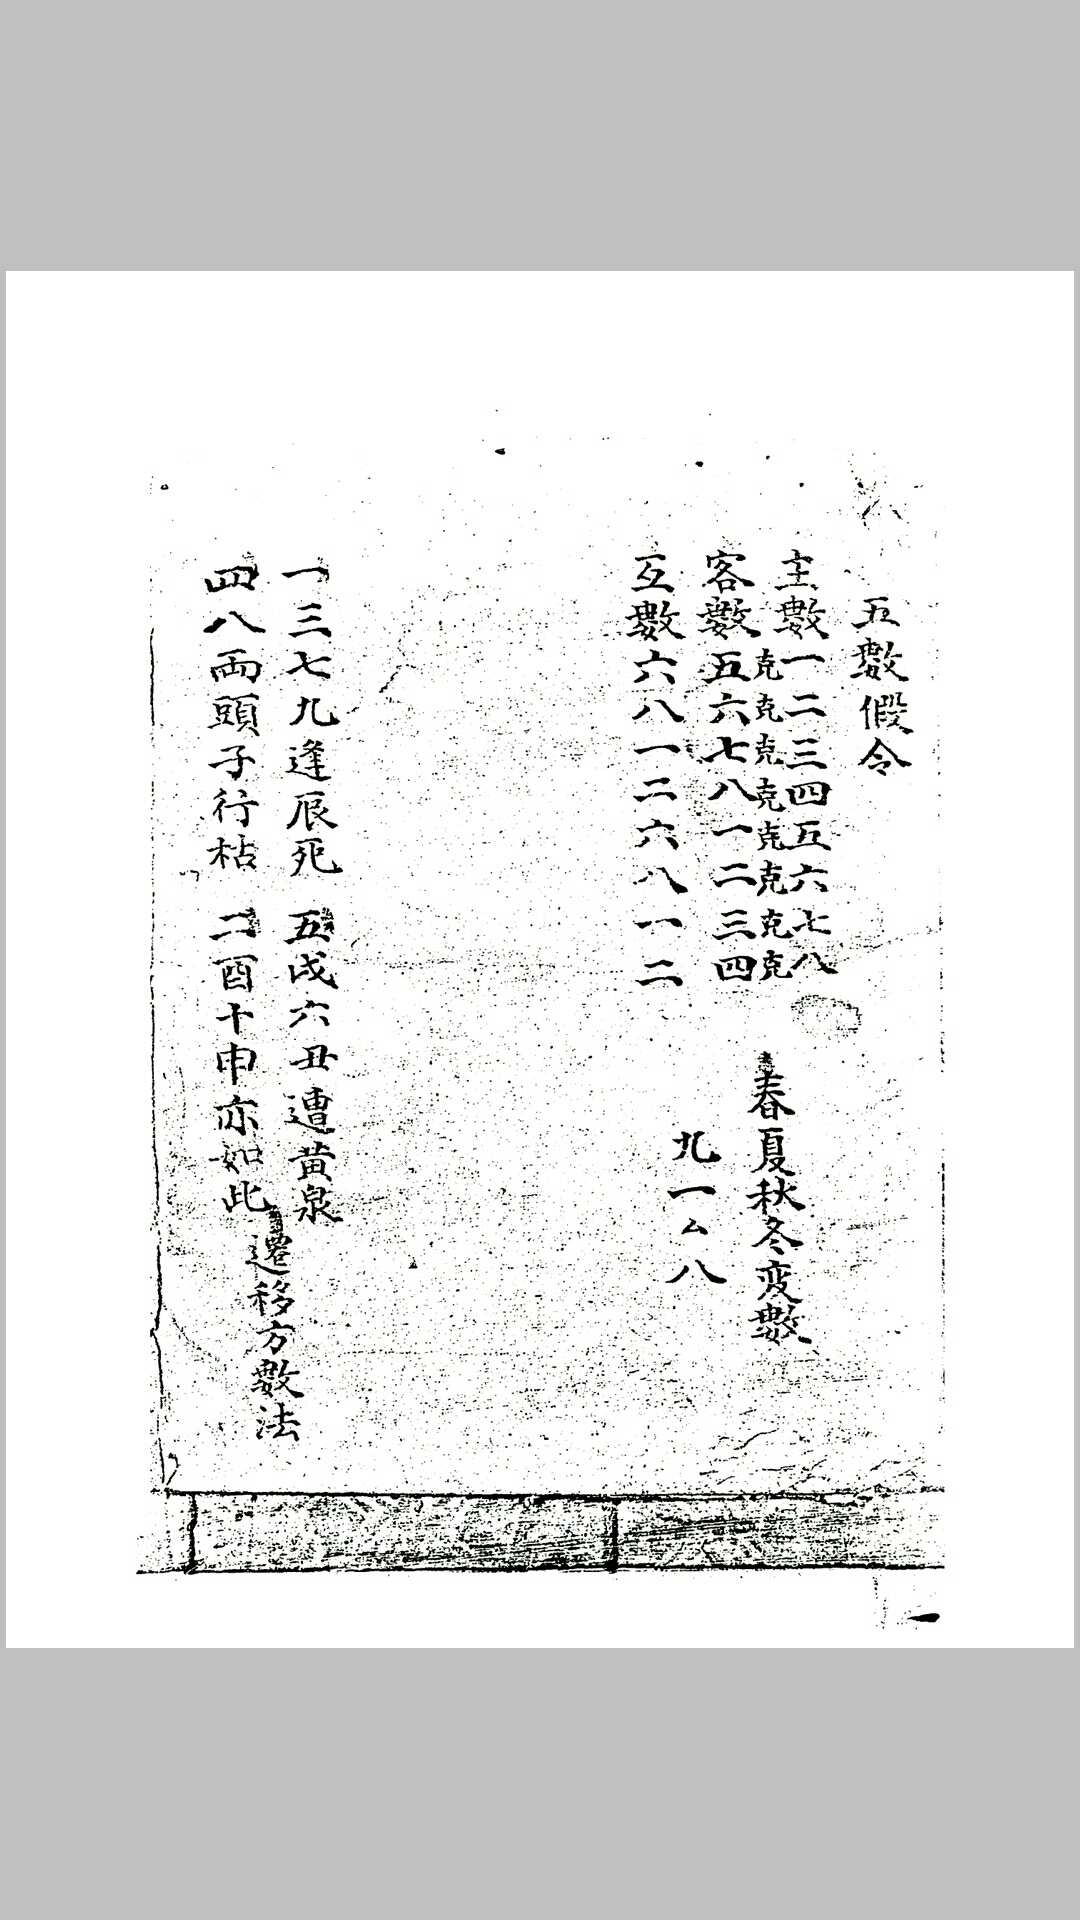 五數假令
主數一二三四五六七八
克克克克克克克克
客數五六七八一二三四
互數六八一二六八一二
春夏秋冬変數
九一ム八
一三七九逢辰死 五戌六丑遭黄泉
四八両頭子行枯 二酉十申亦如此
遷移方數法